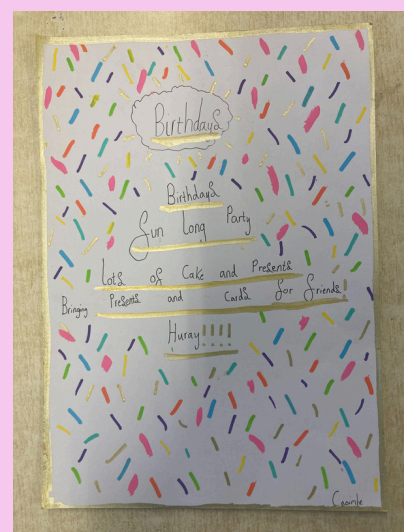 Birthdays
Birthdays
Fun Long Party
Lots of Cake and Presents
Bringing Presents and Cards for Friends!
Huray!!!!!